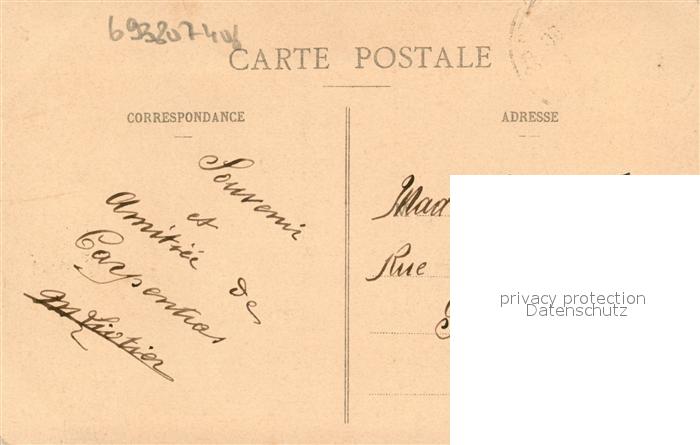 693807406
CARTE POSTALE
CORRESPONDANCE
ADRESSE
Souvenir
et
Amitiée de
Carpentras
Mad
Rue
privacy protection
Datenschutz